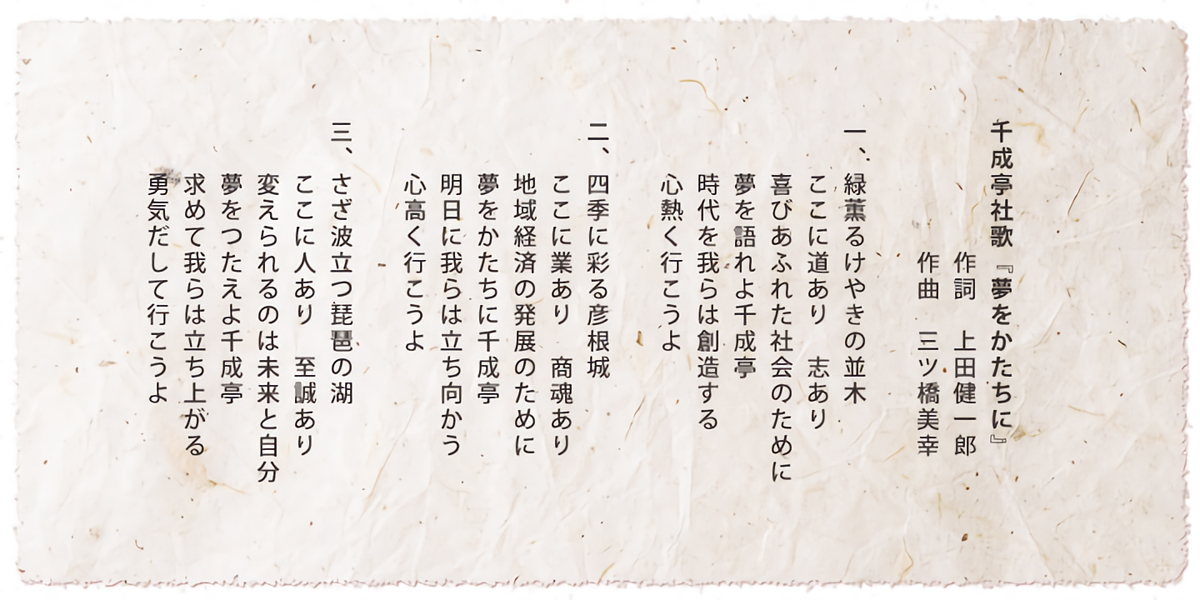 千成亭社歌『夢をかたちに』
作詞　上田健一郎
作曲　三ツ橋美幸
一、緑薫るけやきの並木
ここに道あり　志あり
喜びあふれた社会のために
夢を語れよ千成亭
時代を我らは創造する
心熱く行こうよ
二、四季に彩る彦根城
ここに業あり　商魂あり
地域経済の発展のために
夢をかたちに千成亭
明日に我らは立ち向かう
心高く行こうよ
三、さざ波立つ琵琶の湖
ここに人あり　至誠あり
変えられるのは未来と自分
夢をつたえよ千成亭
求めて我らは立ち上がる
勇気だして行こうよ